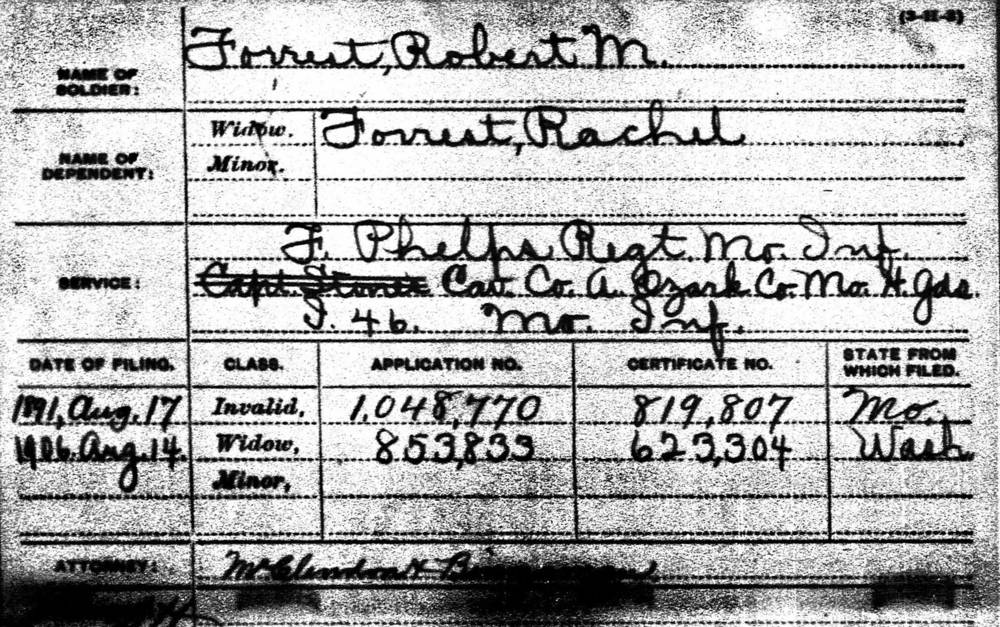 (3-11-8)
NAME OF SOLDIER: Forrest, Robert M.
NAME OF DEPENDENT: Widow. Forrest, Rachel
Minor.
SERVICE: F. Phelps Regt. Mo. Inf.
Capt. Cav. Co. A. Ozark Co. Mo. H. Gds.
I. 46. Mo. Inf.
DATE OF FILING. CLASS. APPLICATION NO. CERTIFICATE NO. STATE FROM WHICH FILED.
1891, Aug. 17 Invalid, 1,048,770 819,807 Mo.
1906. Aug. 14. Widow, 853,833 623,304 Wash
Minor,
ATTORNEY: McClendon &